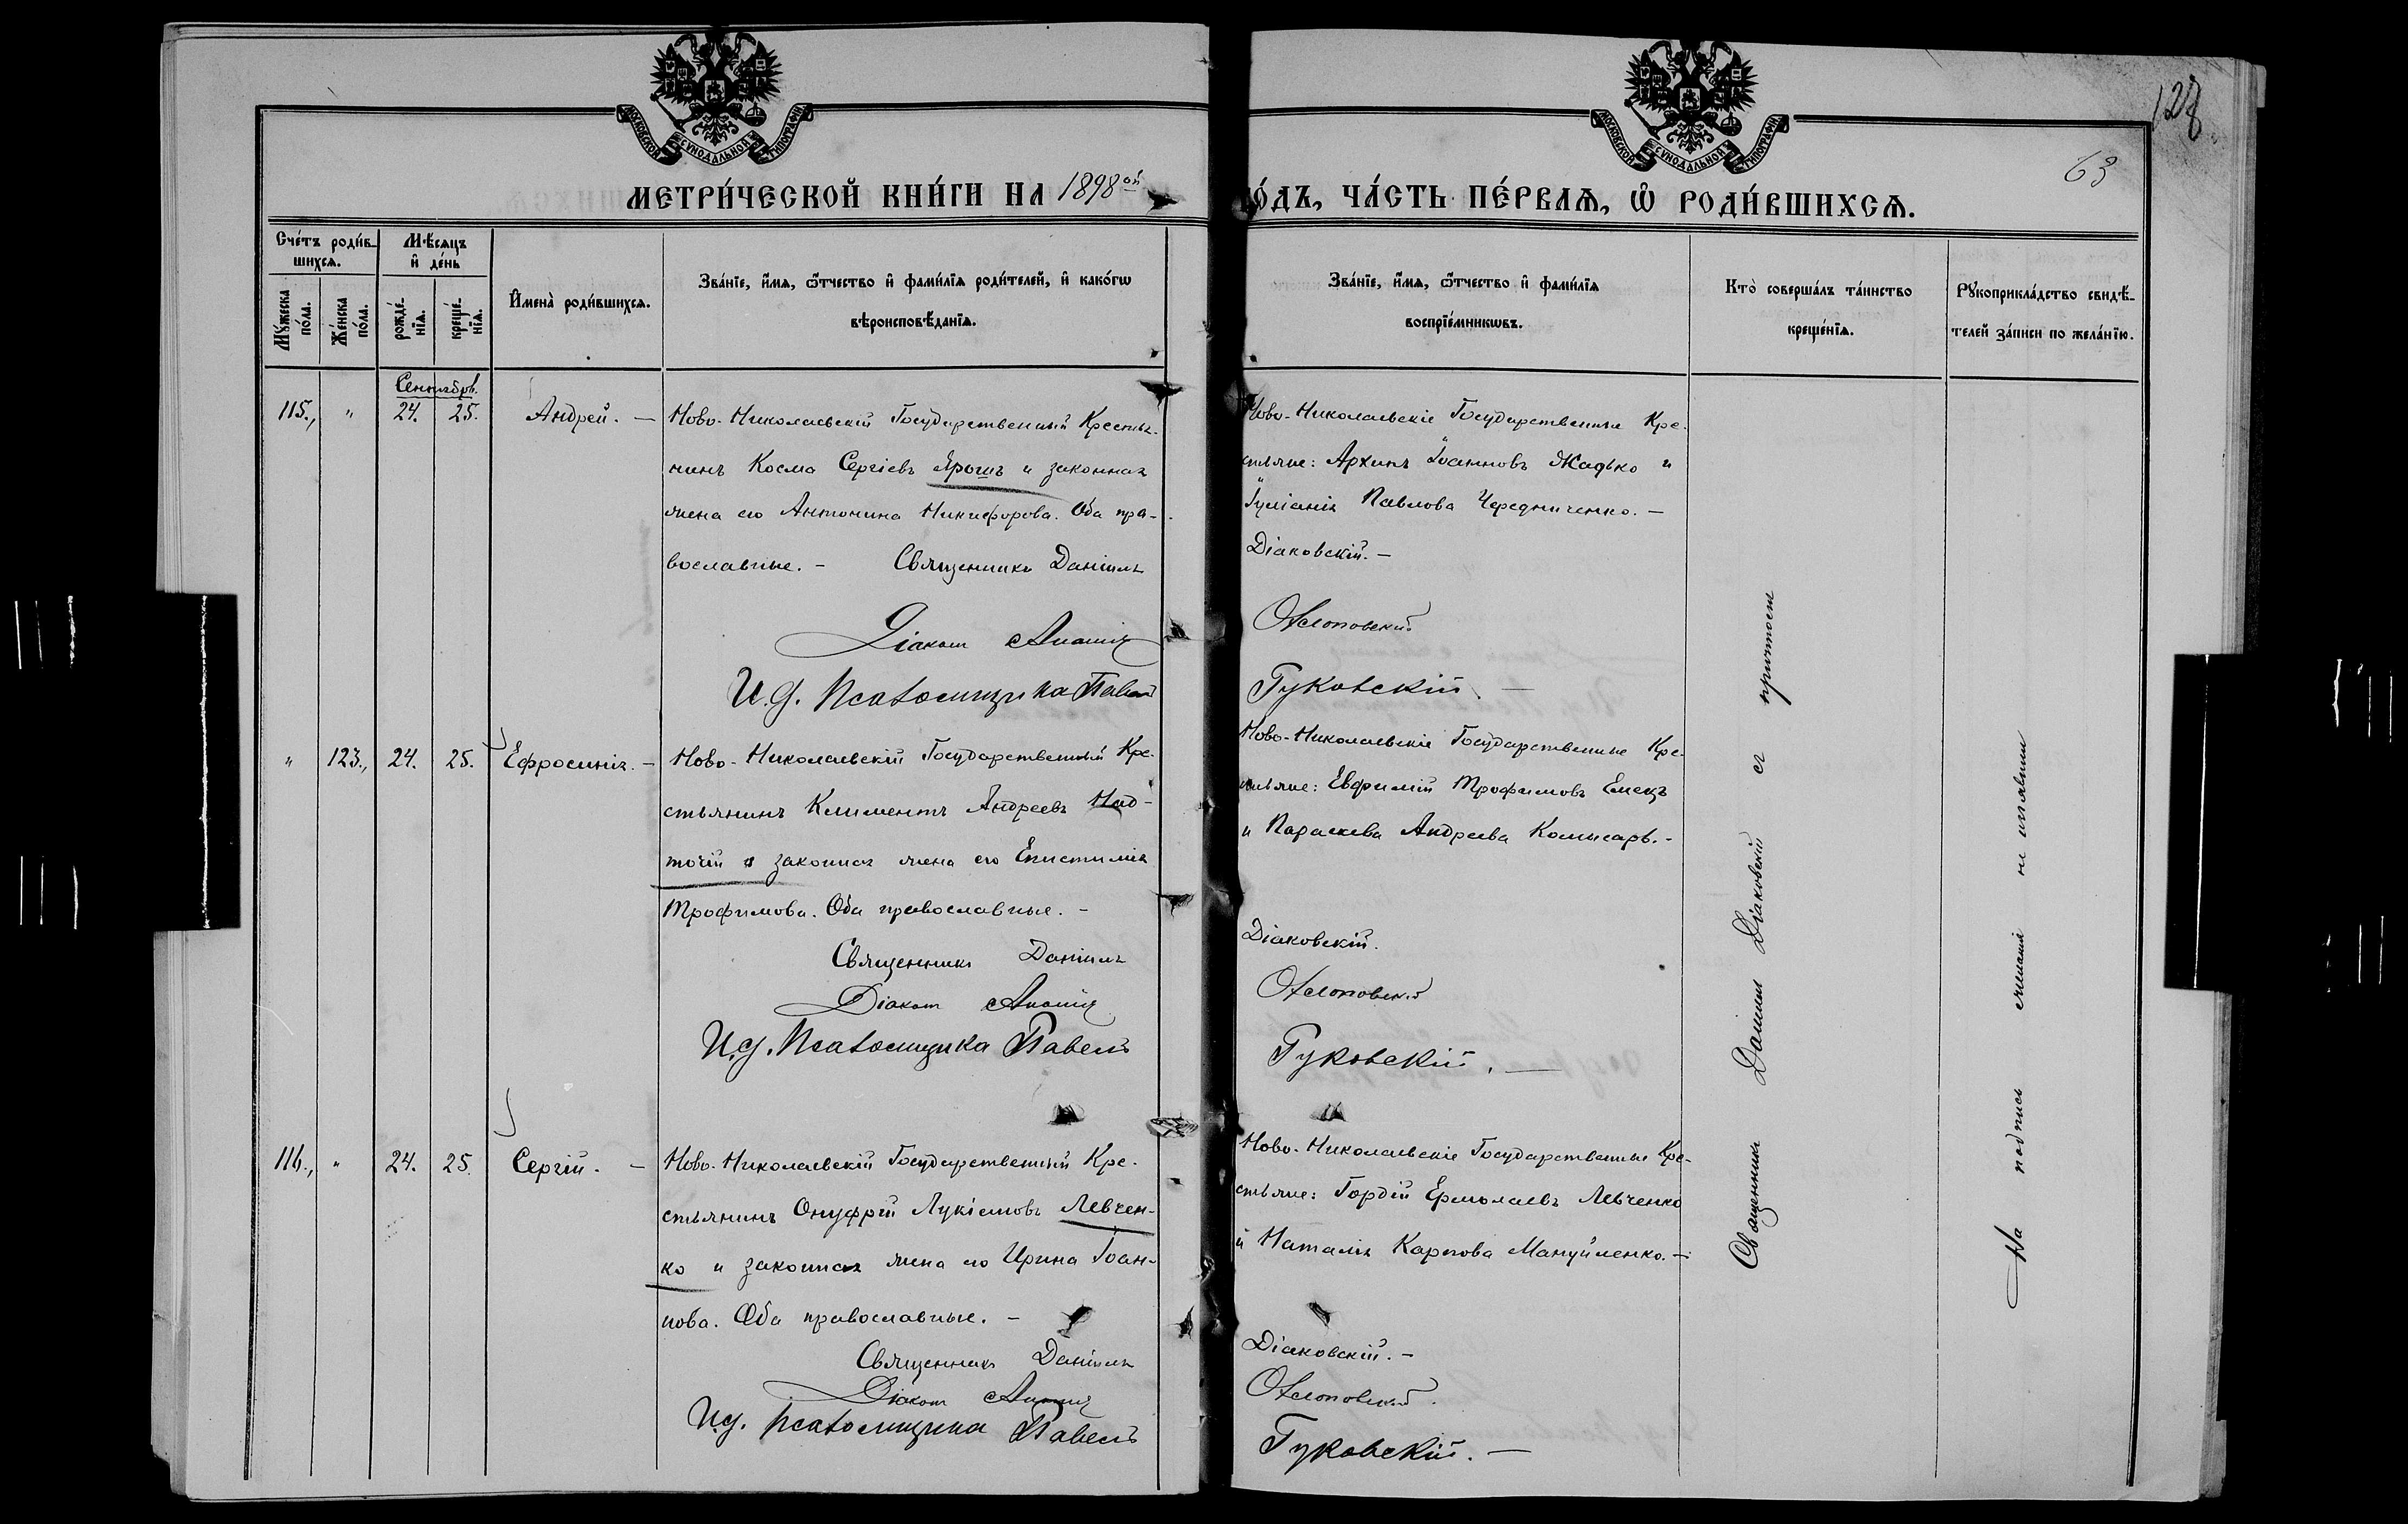 128
63
МОСКОВСКОЙ СѴНОДАЛЬНОЙ ТИПОГРАФІИ
МОСКОВСКОЙ СѴНОДАЛЬНОЙ ТИПОГРАФІИ
МЕТРИ́ЧЕСКОЙ КНИ́ГИ НА 1898ой
ГО́ДЪ, ЧА́СТЬ ПЕ́РВАѦ, Ѡ҆ РОДИ́ВШИХСѦ.
Сче́тъ роди́в-
шихсѧ.
Мѣ́сѧцъ
и҆ де́нь
Мꙋ́жеска
по́ла.
Же́нска
по́ла.
рожде́-
нїѧ.
креще́-
нїѧ.
И҆мена̀ роди́вшихсѧ.
Зва́нїе, и҆́мѧ, ѻ҆́тчество и҆ фами́лїѧ роди́телей, и҆ како́гѡ
вѣроисповѣ́данїѧ.
Зва́нїе, и҆́мѧ, ѻ҆́тчество и҆ фами́лїѧ
воспрїе́мникѡвъ.
Кто̀ соверша́лъ та́инство
креще́нїѧ.
Рꙋкоприкла́дство свидѣ́-
телей за́писи по жела́нїю.
Сентябрь.
115., " 24. 25. Андрей. — Ново-Николаевскій Государственный Крестья-
нинъ Косма Сергіевъ Ярошъ и законная
жена его Антонина Никифорова. Оба пра-
вославные. — Священникъ Даніилъ
Діаконъ Ананія
И.д. Псаломщика Павелъ
Ново-Николаевскіе Государственные Кре-
стьяне: Архипъ Іоанновъ Жадько и
Іуліанія Павлова Чередниченко. —
Діаковскій. —
Гуковскій. —
" 123., 24. 25. Ефросинія. — Ново-Николаевскій Государственный Кре-
стьянинъ Климентъ Андреевъ Над-
точій и законная жена его Епистимія
Трофимова. Оба православные. —
Священникъ Даніилъ
Діаконъ Ананія
И.д. Псаломщика Павелъ
Ново-Николаевскіе Государственные Кре-
стьяне: Евфимій Трофимовъ Емецъ
и Параскева Андреева Комисаръ. —
Діаковскій.
Гуковскій. —
116., " 24. 25. Сергій. — Ново-Николаевскій Государственный Кре-
стьянинъ Онуфрій Лукіановъ Левчен-
ко и законная жена его Ирина Іоан-
нова. Оба православные. —
Священникъ Даніилъ
Діаконъ Ананія
И.д. Псаломщика Павелъ
Ново-Николаевскіе Государственные Кре-
стьяне: Гордій Ермолаевъ Левченко
и Наталія Карпова Мануйленко. —
Діаковскій. —
Гуковскій. —
Священникъ Даніилъ Діаковскій съ причтомъ
На подпись желанія не изъявили